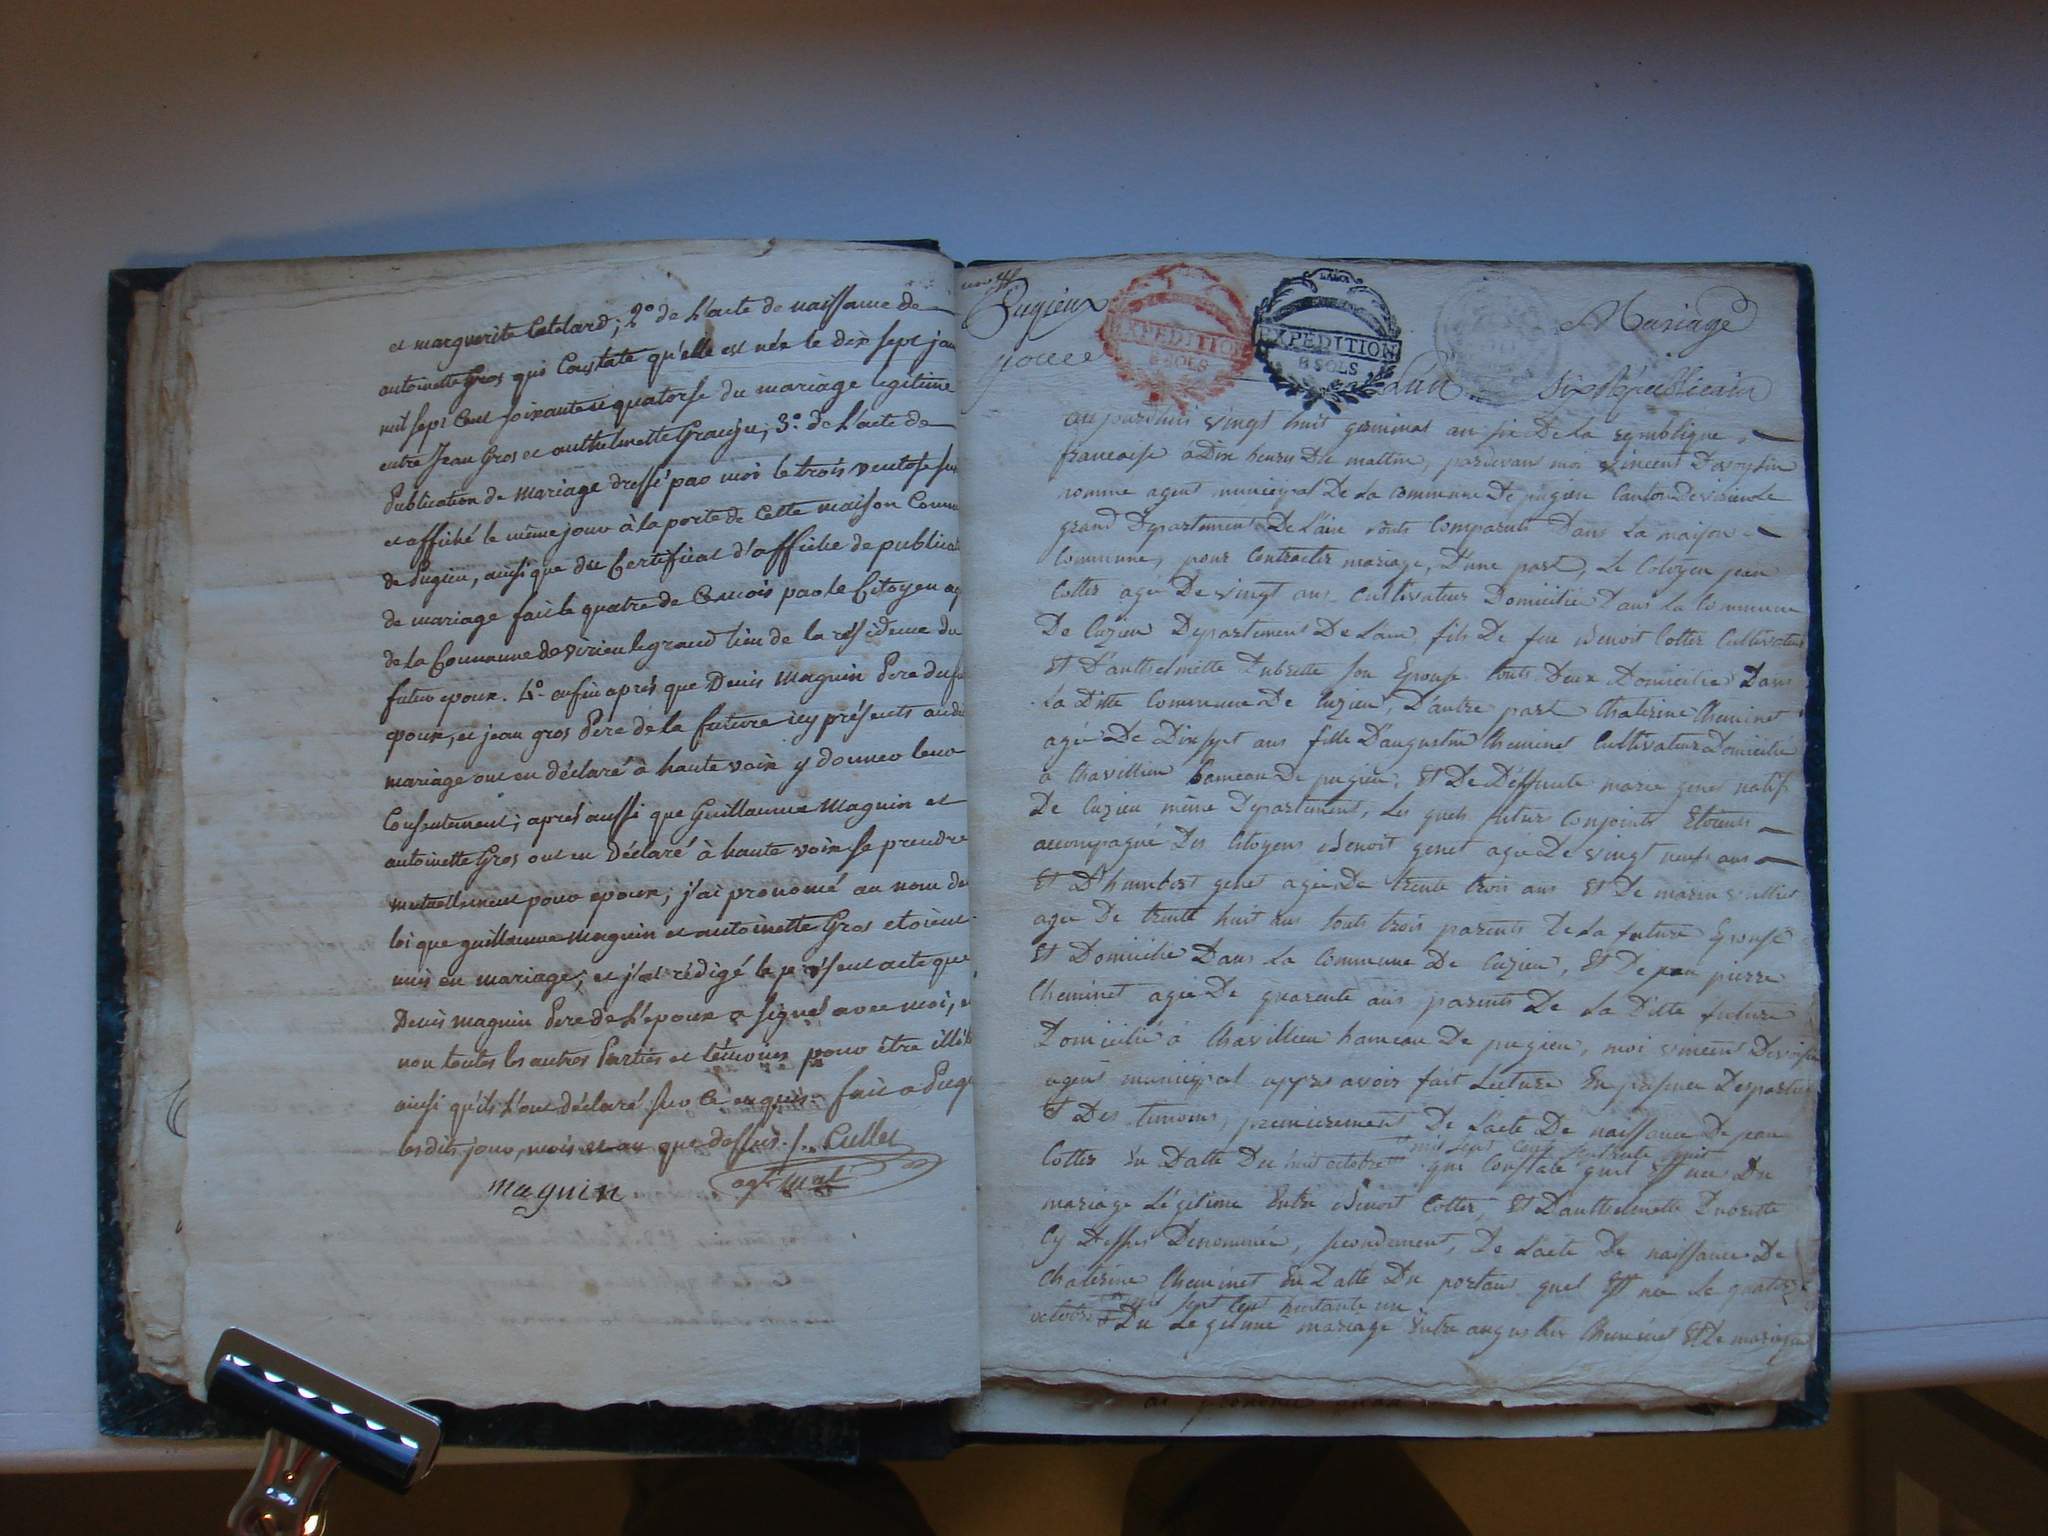 et marguerite Catelard; 2° de L'acte de naissance de
antoinette Gros qui Constate qu'elle est née le dix sept jan
mil sept Cent soixante et quatorse du mariage legitime
entre Jean Gros et anthelmette Grauju; 3° de L'acte de
Publication de Mariage dressé par moi le trois ventose
et affiché le même jour à la porte de Cette maison Comm
de Pugieu, ainsi que du Certificat d'affiche de publica
de mariage fait le quatre de Ce mois par le Citoyen ag
de la Commune de virieu le grand lieu de la résidence du
futur epoux. 4° enfin aprés que Denis Maguin Pere du fu
epoux, et jean gros Pere de la future icy présents audit
mariage ont en déclaré à haute voix y donner leur
Consentement; aprés aussi que Guillaume Maguin et
antoinette Gros ont en Déclaré à haute voix se prendre
mutuellement pour epoux; j'ai pronomé au nom de
loi que guillaume maguin et antoinette Gros etoient
unis en mariage; et j'ai rédigé le présent acte que
Denis maguin Pere de L'epoux a signé avec moi, e
non toutes les autres Parties et témoins pour être illét
ainsi qu'ils L'ont déclaré sur ce enquis. fait a Pug
les dits jour, mois et an que dessus. J. Cullet
maguin agt mal
Pugieux
EXPÉDITION
8 SOLS
EXPÉDITION
8 SOLS
Mariage
L'an six Républicain
aujourdhuis vingt huit germinal an six De La republique
francaise à Dix heures Du mattin, pardevant moi vincent Devoysin
nomme agent municipal De La commune De pugieu Canton De virieu Le
grand Departement De L'ain sonts Comparents Dans La maison
Commune, pour Contracter mariage, D'une part, Le Citoyen jean
Cottez agé De vingt ans Cultivateur Domicilié Dans La Commune
De Cuzieu Departement De L'ain, fils De feu Benoit Cottez Cultivateur
Et D'anthelmette Dubrette son Epouse touts Deux Domicilié Dans
La Ditte Commune De Cuzieu, D'autre part Chaterine Cheminet
agée De Dixsept ans fille D'augustin Cheminet Cultivateur Domicilié
à Chavillieu hameau De pugieu, Et De Deffunte marie genet natifs
De Cuzieu même Departement, Les quels futurs Conjoints Etoients
accompagné Des Citoyens Benoit genet agé De vingt neuf ans
Et D'humbert genet agée De trente trois ans Et De marin vulliet
agé De trente huit ans touts trois parents De La future Epouse
Et Domicilié Dans La Commune De Cuzieu, Et De jean pierre
Cheminet agée De quarente ans parents De La Ditte future
Domicilié à Chavillieu hameau De pugieu, moi vincent Devoysin
agent municipal appres avoir fait Lecture En presence Des parties
Et Des temoins, premierement De L'acte De naissance De jean
mil sept cent septente huit
Cottez En Datte Du huit octobre qui Constate quil Est née Du
mariage Légitime Entre Benoit Cottez, Et D'anthelmette Dubrette
Cy Dessus Denommée, secondement, De L'acte De naissance De
Chaterine Cheminet En Datte Du portant quel Est née Le quatre
mil sept Cent huitante un
octobre Du Legitime mariage Entre augustin Cheminet Et De marie